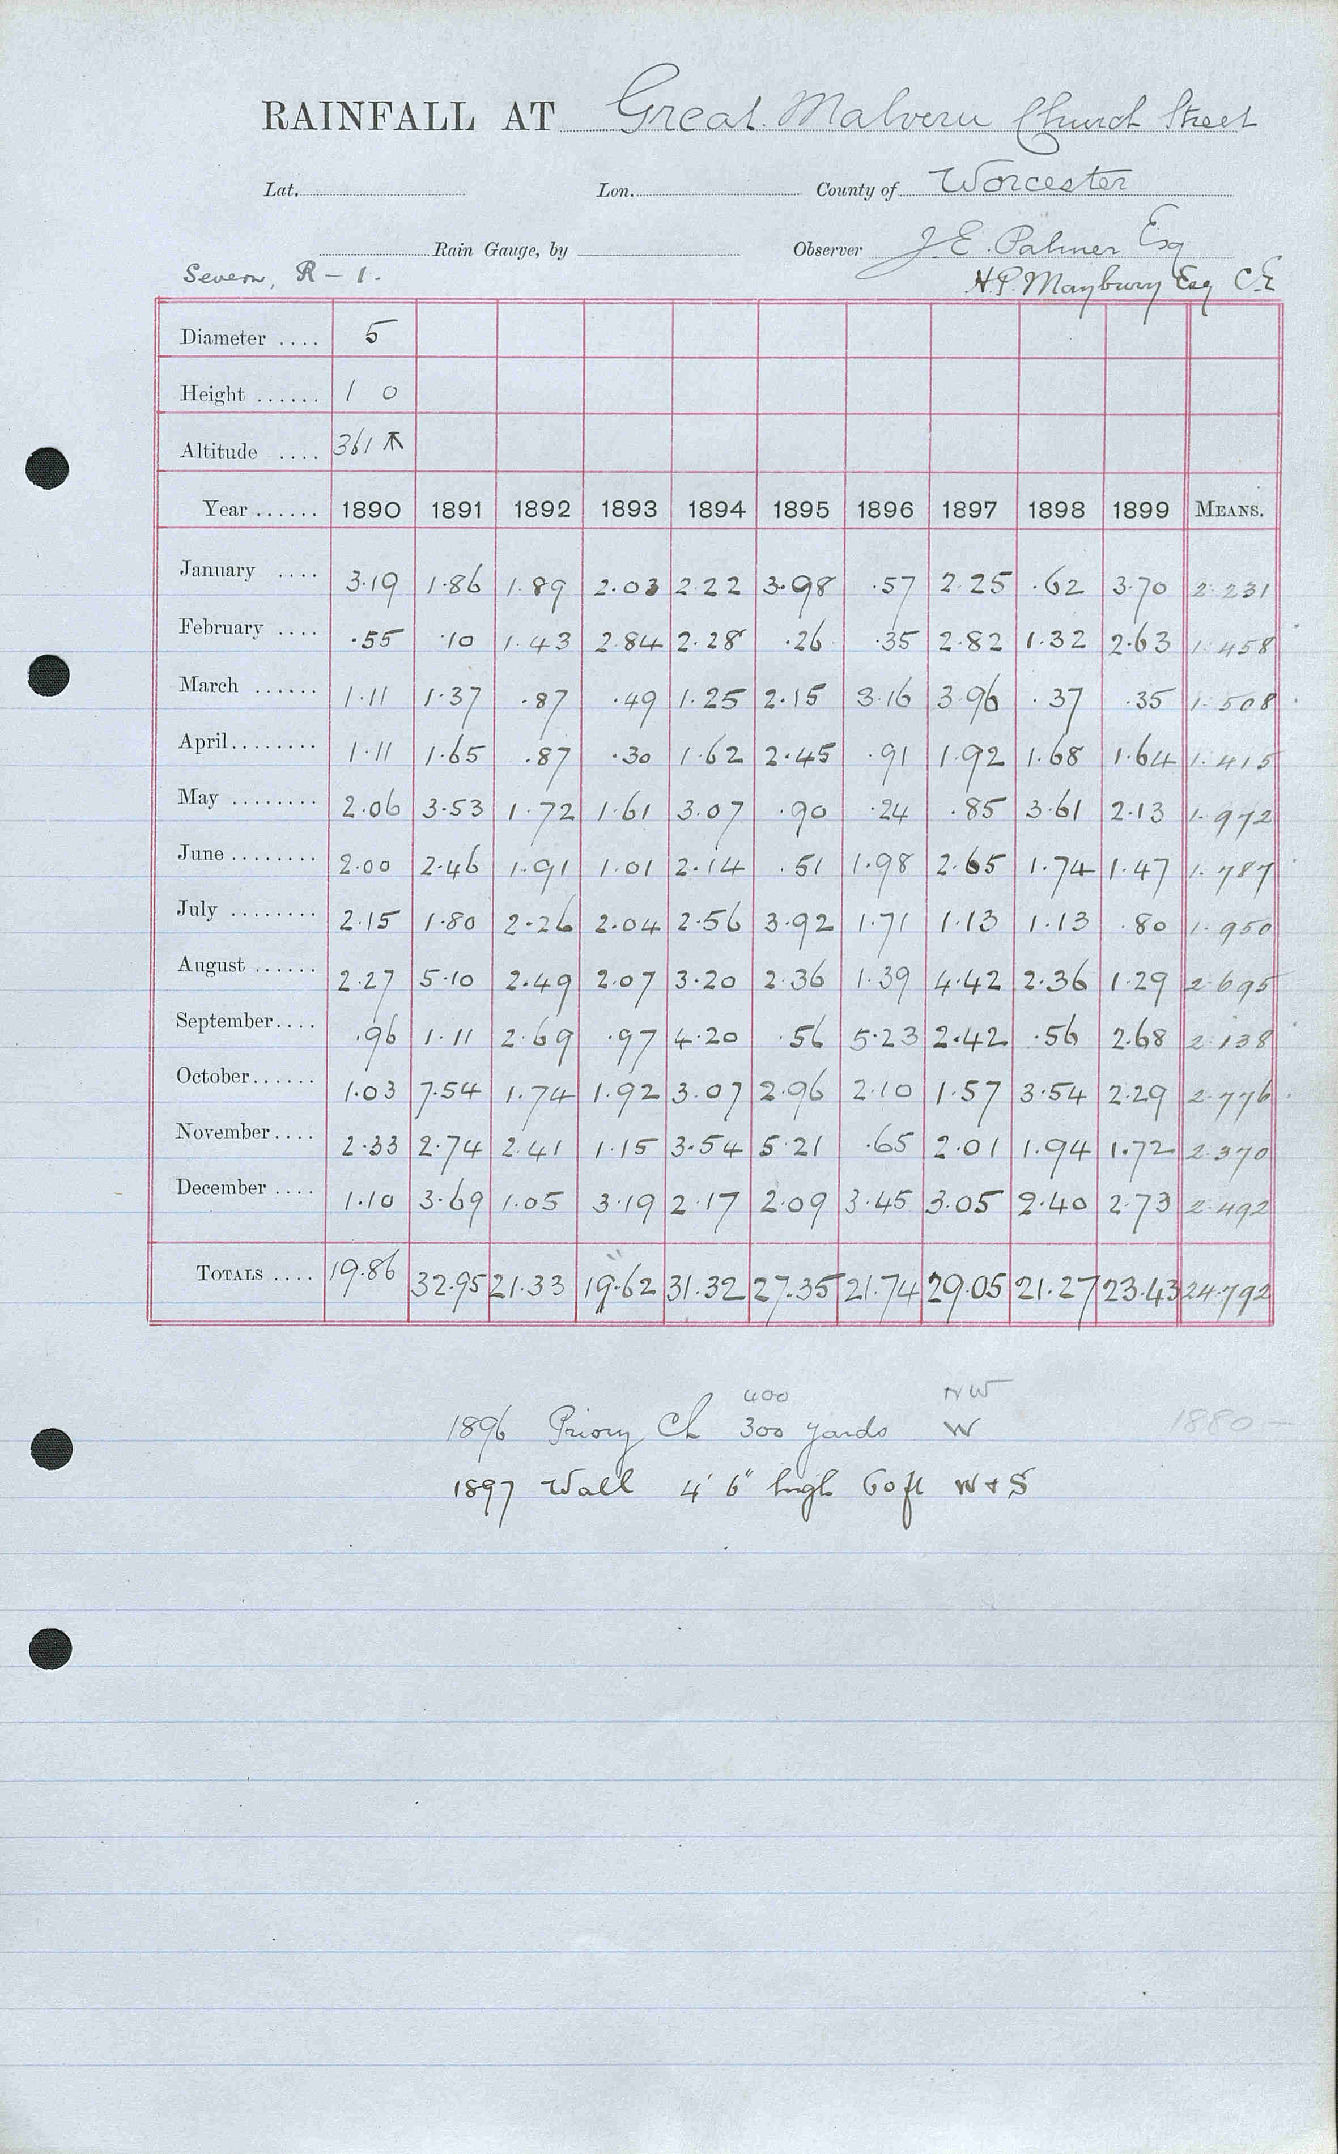 RAINFALL AT Great Malvern Church Street
Lat. Lon. County of Worcester
Rain Gauge, by Observer J. E. Palmer Esq
Severn, R - 1. H.P. Maybury Esq C.E
Diameter .... 5
Height ...... 1 0
Altitude .... 361
Year ...... 1890 1891 1892 1893 1894 1895 1896 1897 1898 1899 MEANS.
January .... 3.19 1.86 1.89 2.03 2.22 3.98 .57 2.25 .62 3.70 2.231
February .... .55 .10 1.43 2.84 2.28 .26 .35 2.82 1.32 2.63 1.458
March ...... 1.11 1.37 .87 .49 1.25 2.15 3.16 3.96 .37 .35 1.508
April........ 1.11 1.65 .87 .30 1.62 2.45 .91 1.92 1.68 1.64 1.415
May ........ 2.06 3.53 1.72 1.61 3.07 .90 .24 .85 3.61 2.13 1.972
June ........ 2.00 2.46 1.91 1.01 2.14 .51 1.98 2.65 1.74 1.47 1.787
July ........ 2.15 1.80 2.26 2.04 2.56 3.92 1.71 1.13 1.13 .80 1.950
August ...... 2.27 5.10 2.49 2.07 3.20 2.36 1.39 4.42 2.36 1.29 2.695
September.... .96 1.11 2.69 .97 4.20 .56 5.23 2.42 .56 2.68 2.138
October...... 1.03 7.54 1.74 1.92 3.07 2.96 2.10 1.57 3.54 2.29 2.776
November.... 2.33 2.74 2.41 1.15 3.54 5.21 .65 2.01 1.94 1.72 2.370
December .... 1.10 3.69 1.05 3.19 2.17 2.09 3.45 3.05 2.40 2.73 2.492
TOTALS .... 19.86 32.95 21.33 19.62 31.32 27.35 21.74 29.05 21.27 23.43 24.792
400 NW
1896 Priory Ch 300 yards W 1880 -
1897 Wall 4' 6" high 60 ft W + S